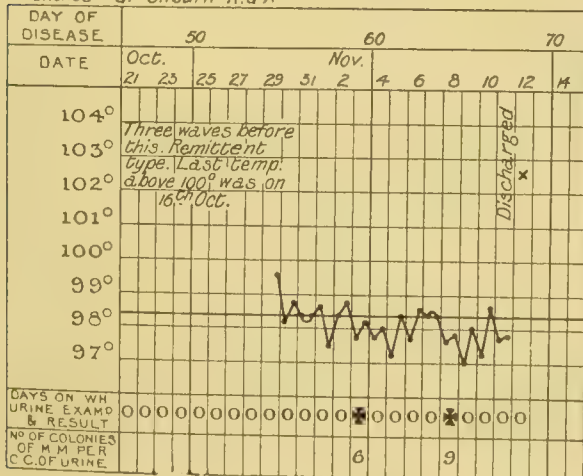 DAY OF
DISEASE
50 60 70
DATE
Oct. Nov.
21 23 25 27 29 31 2 4 6 8 10 12 14
104°
103°
102°
101°
100°
99°
98°
97°
Three waves before
this. Remittent
type. Last temp.
above 100° was on
16th Oct.
Discharged
x
DAYS ON WH
URINE EXAMD
& RESULT
0 0 0 0 0 0 0 0 0 0 0 0 0 ✠ 0 0 0 0 ✠ 0 0 0 0
NO OF COLONIES
OF M M PER
C.C. OF URINE
6 9